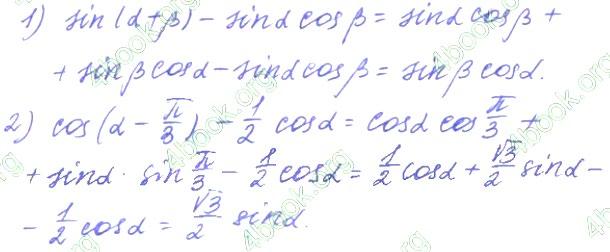 1) sin(α+β) - sinα cosβ = sinα cosβ +
+ sinβ cosα - sinα cosβ = sinβ cosα.
2) cos(α - π/3) - 1/2 cosα = cosα cos π/3 +
+ sinα · sin π/3 - 1/2 cosα = 1/2 cosα + √3/2 sinα -
- 1/2 cosα = √3/2 sinα.
4book.org